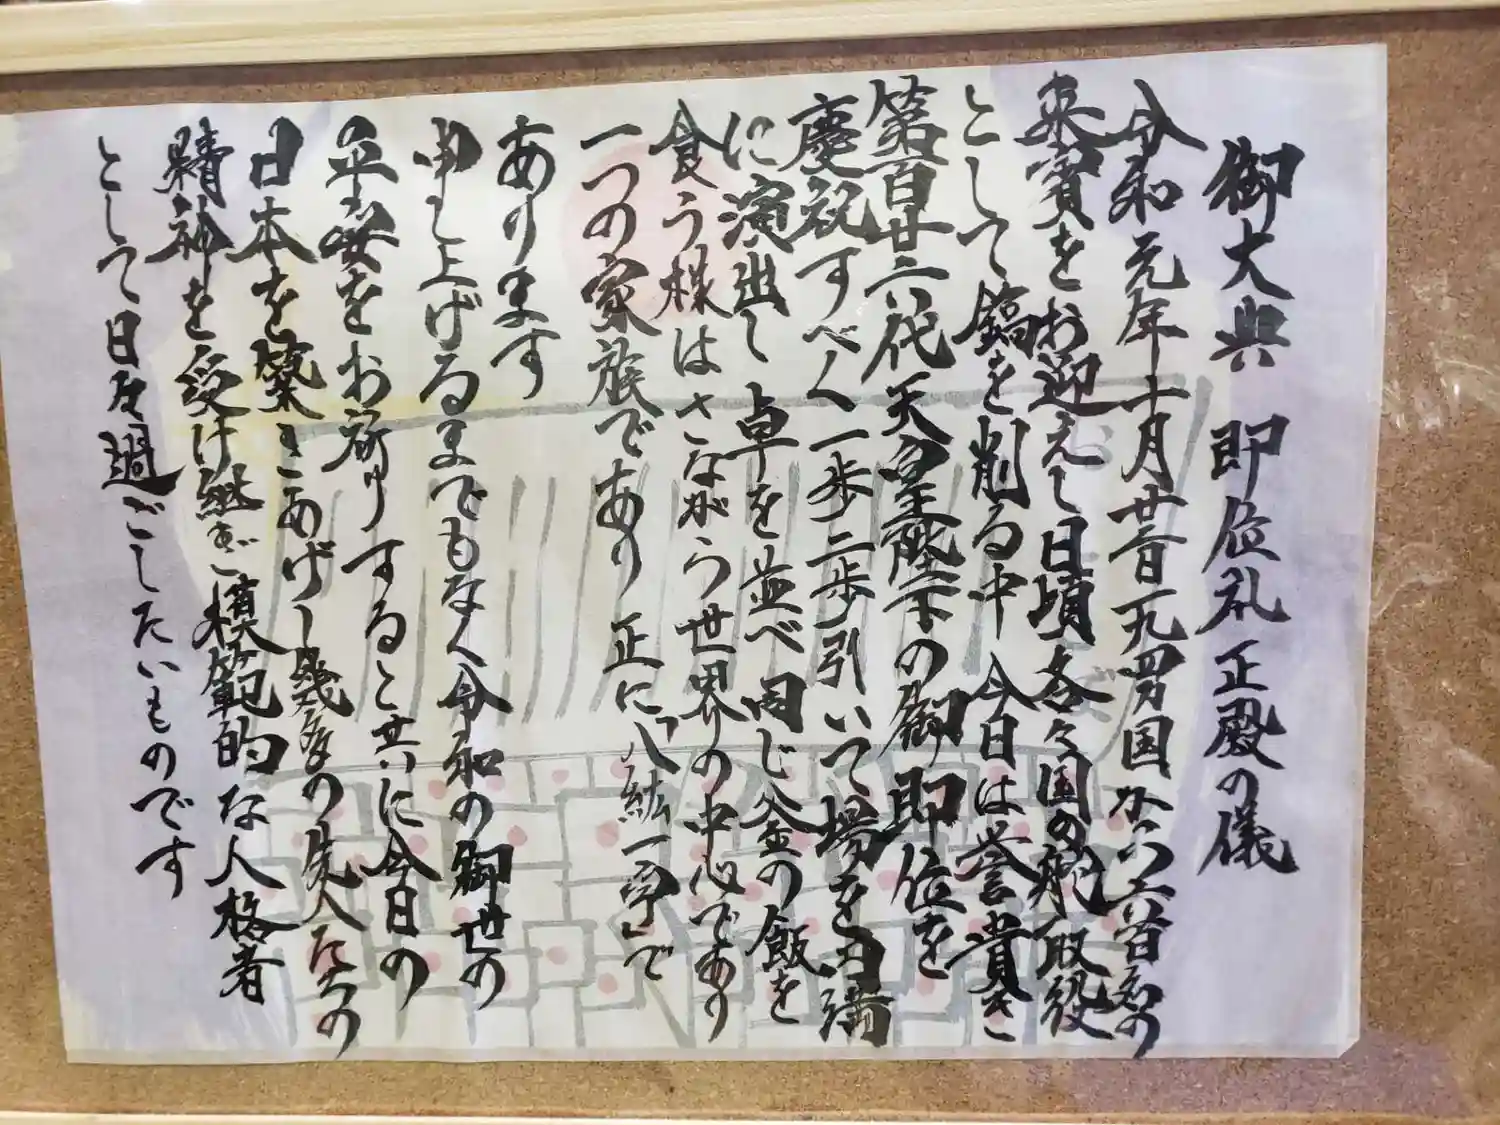 御大典 即位礼正殿の儀
令和元年十月廿二日一九四ヵ国から六百名の
来賓をお迎えし日頃各々国の舵取役
として鎬を削る中 今日は誉貴き
第百廿六代天皇陛下の御即位を
慶祝すべく一歩二歩引いて場を円満
に演出し 卓を並べ同じ釜の飯を
食う様はさながら世界の中心であり
一つの家族であり 正に「八紘一宇」で
あります
申し上げるまでもなく令和の御世の
平安をお祈りすると共に今日の
日本を築きあげし幾多の先人たちの
精神を受け継ぎ模範的な人格者
として日々過ごしたいものです